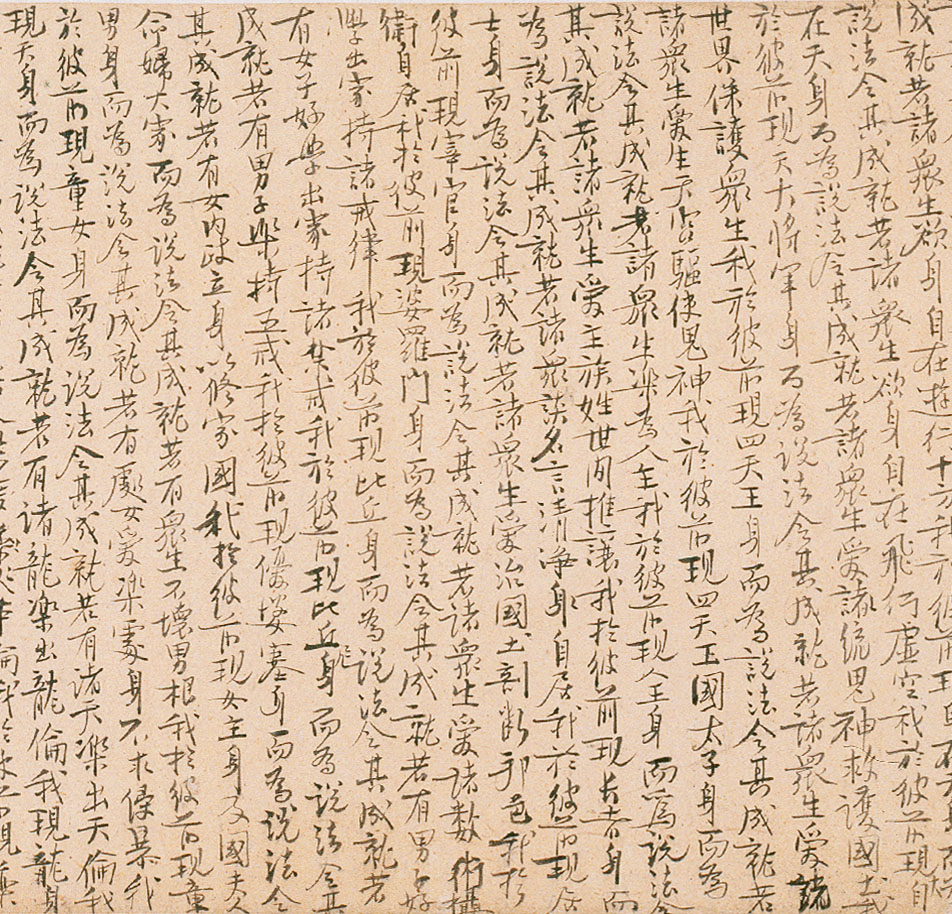 成就若諸眾生欲身自在遊行十方我於彼前現
說法令其成就若諸眾生欲身自在飛行虛空我於彼前現自
在天身而為說法令其成就若諸眾生愛統鬼神救護國土我
於彼前現天大將軍身而為說法令其成就若諸眾生愛統
世界保護眾生我於彼前現四天王身而為說法令其成就若
諸眾生愛生天宮驅使鬼神我於彼前現四天王國太子身而為
說法令其成就若諸眾生樂為人主我於彼前現人王身而為說法令
其成就若諸眾生愛主族姓世間推讓我於彼前現長者身而
為說法令其成就若諸眾談名言清淨身自居我於彼前現居
士身而為說法令其成就若諸眾生愛治國土剖斷邦邑我於
彼前現宰官身而為說法令其成就若諸眾生愛諸數術攝
衛身居我於彼前現婆羅門身而為說法令其成就若有男子好
學出家持諸戒律我於彼前現比丘身而為說法令其成就若
有女子好學出家持諸禁戒我於彼前現比丘尼身而為說法令其
成就若有男子樂持五戒我於彼前現優婆塞身而為說法令
其成就若有女內政立身以修家國我於彼前現女主身及國夫人
命婦大家而為說法令其成就若有眾生不壞男根我於彼前現童
男身而為說法令其成就若有處女愛樂處身不求侵暴我
於彼前現童女身而為說法令其成就若有諸天樂出天倫我
現天身而為說法令其成就若有諸龍樂出龍倫我現龍身